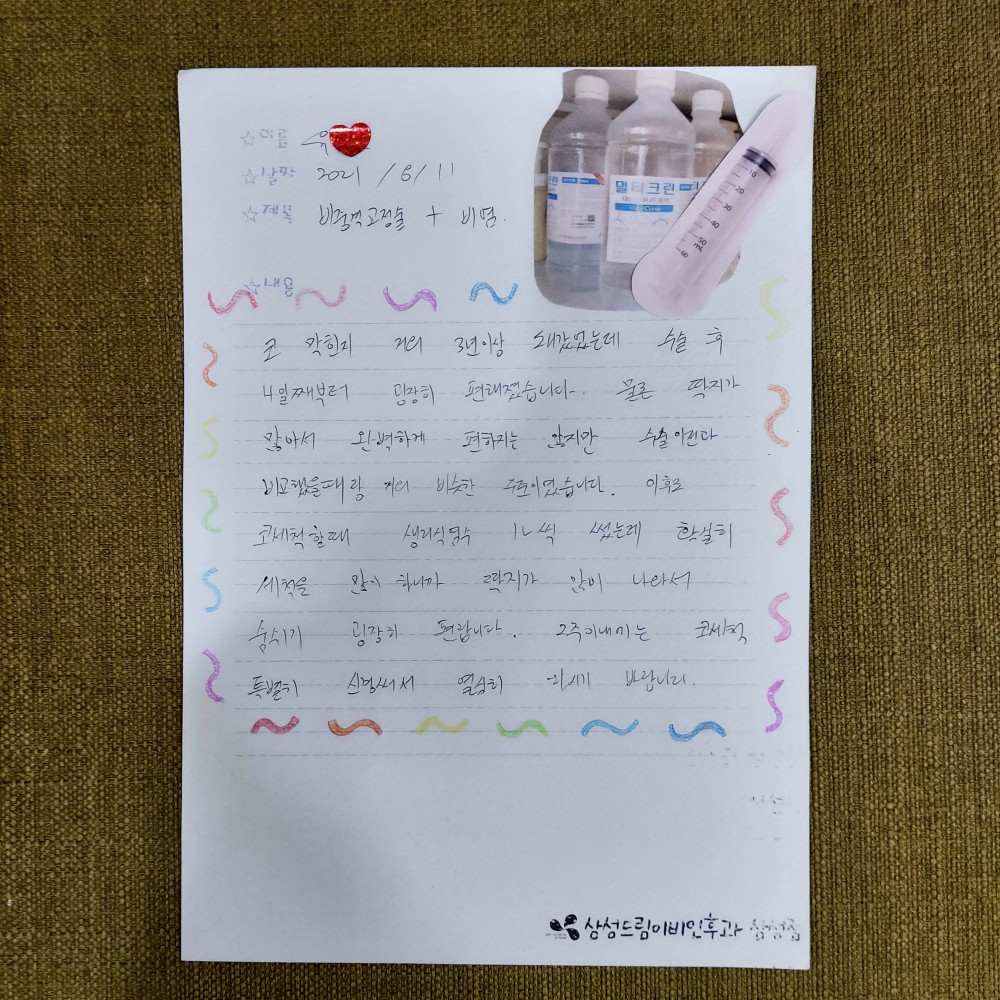 ☆이름 유
☆날짜 2021 / 6 / 11
☆제목 비중격고정술 + 비염.
☆내용
코 막힌지 거의 3년이상 돼갔었는데 수술 후
4일째부터 굉장히 편해졌습니다. 물론 딱지가
많아서 완벽하게 편하지는 않지만 수술이전과
비교했을때랑 거의 비슷한 수준이였습니다. 이후로
코세척할때 생리식염수 1L씩 썼는데 확실히
세척을 많이 하니까 딱지가 많이 나와서
숨쉬기 굉장히 편합니다. 2주이내에는 코세척
특별히 신경써서 열심히 하시기 바랍니다.
멀티크린
10
20
30
40
50
mL
60
삼성드림이비인후과 삼성점